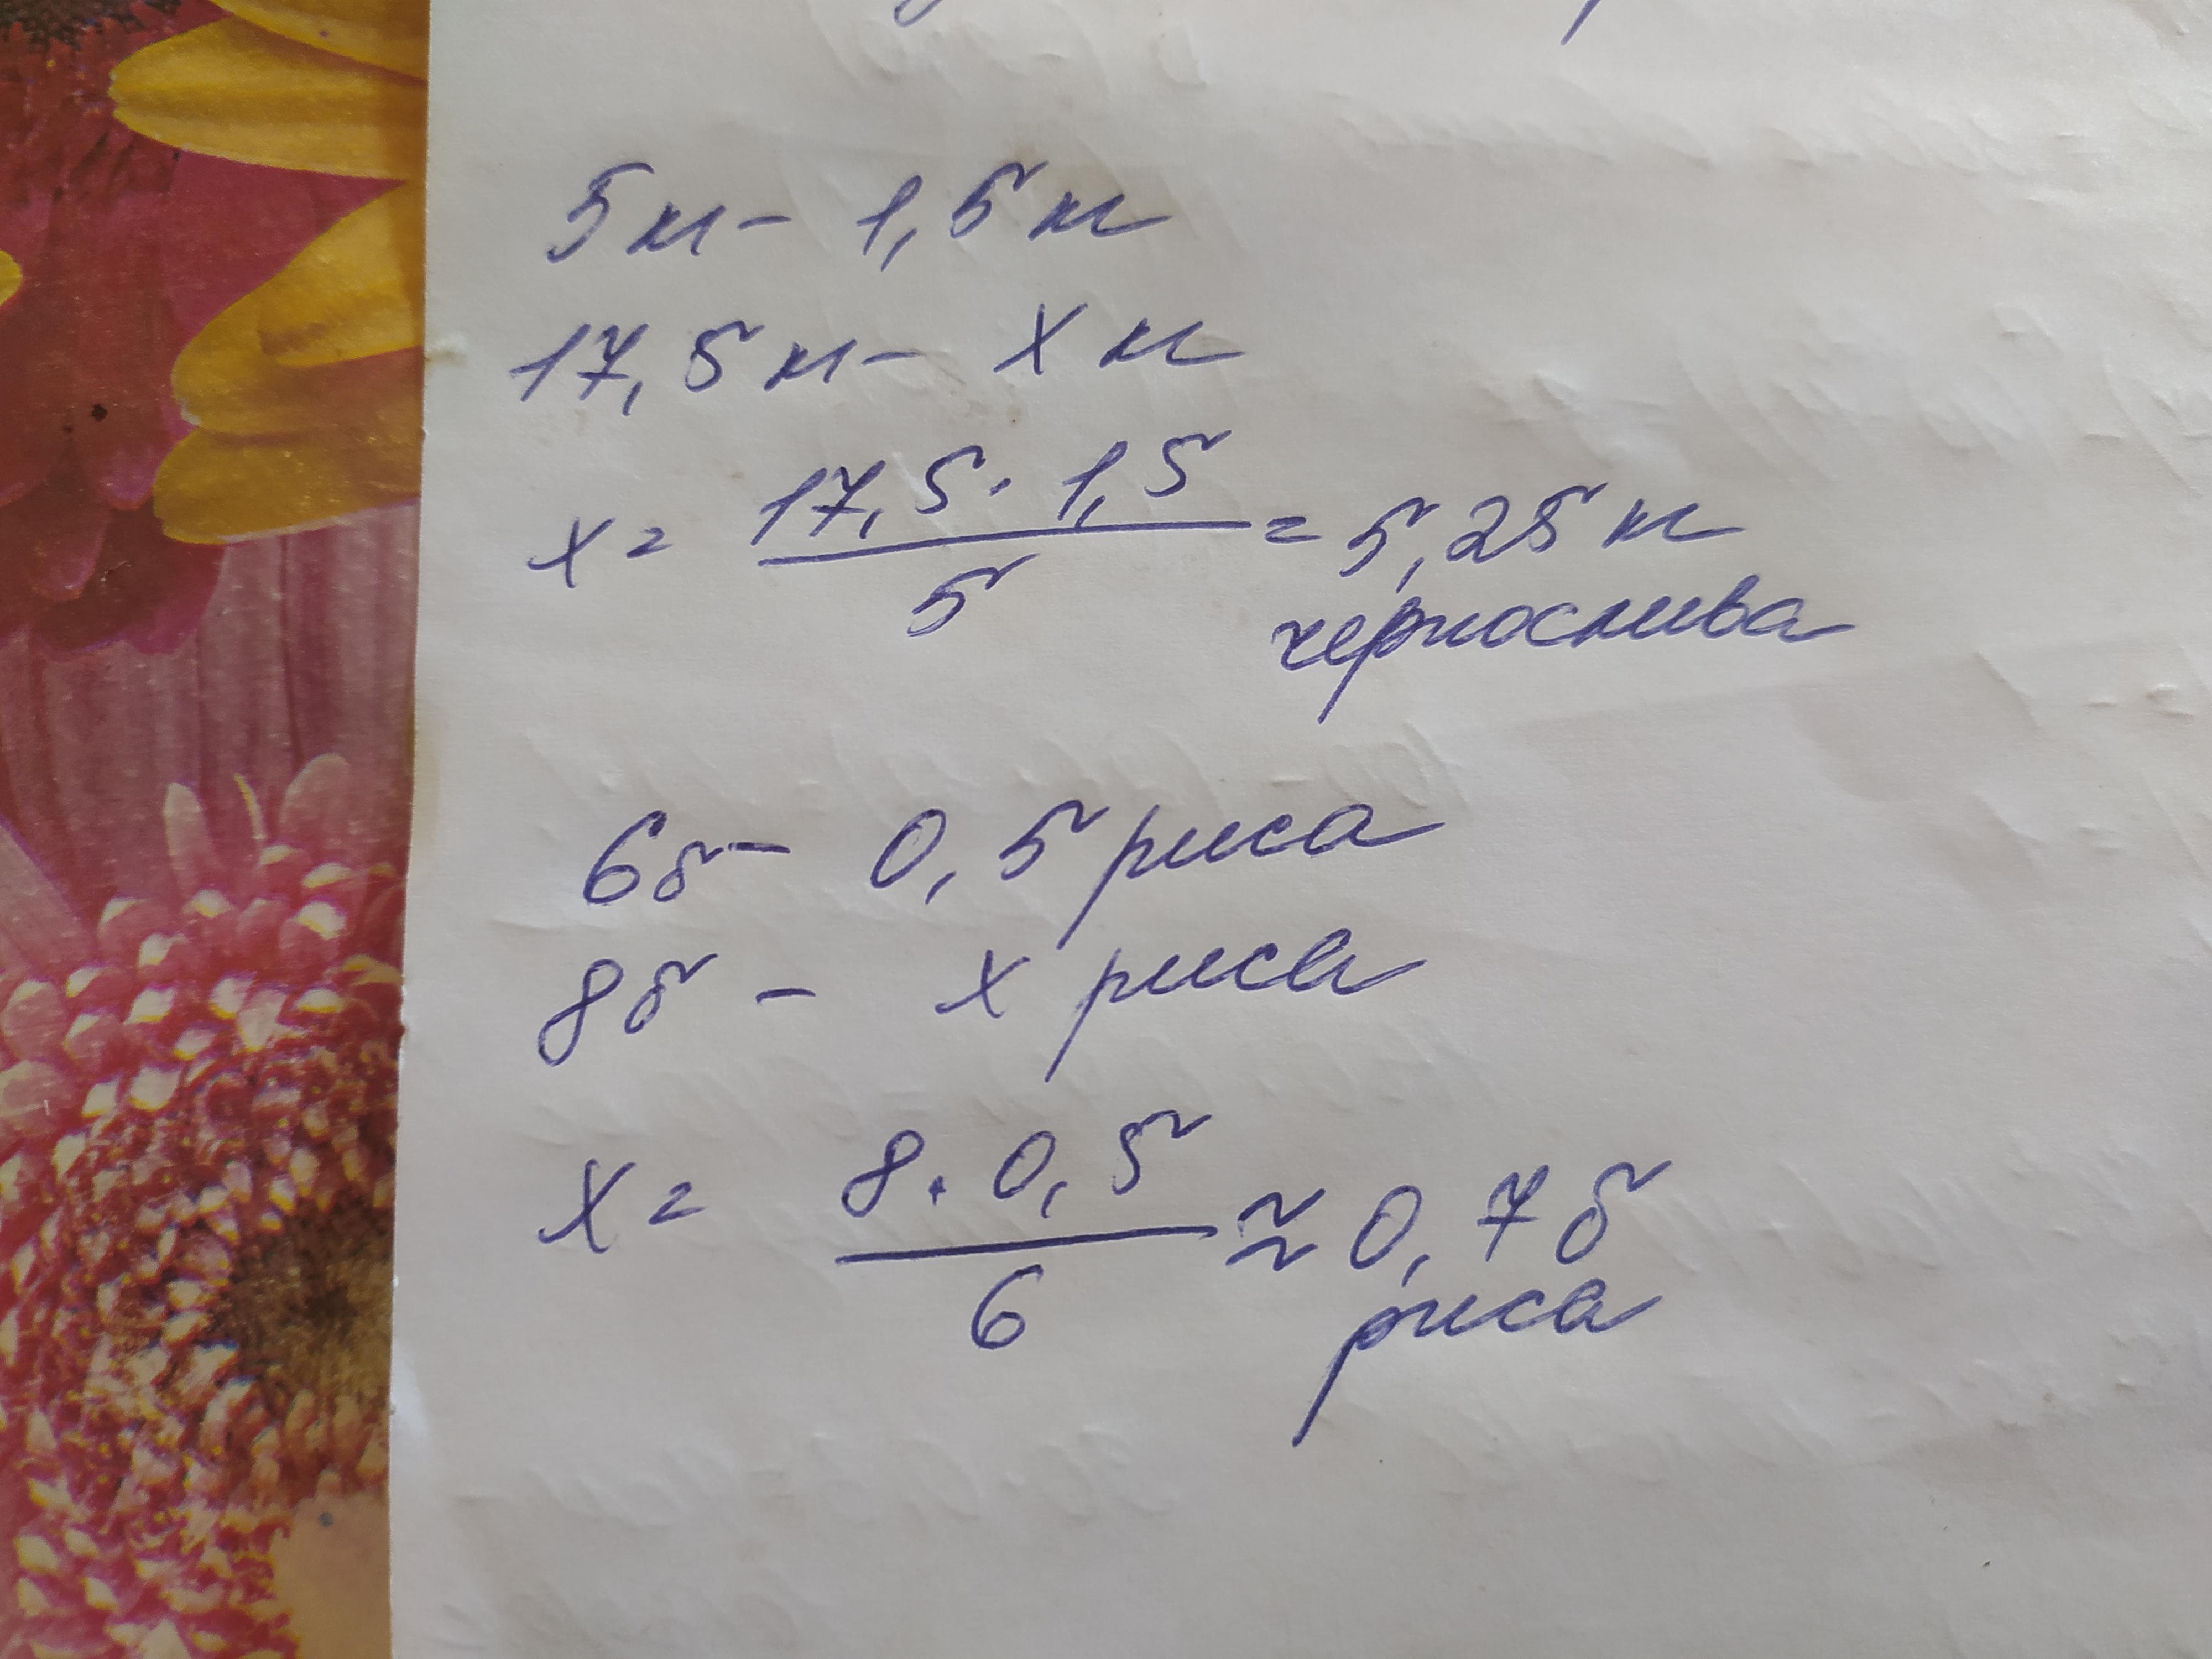 5м - 1,5м
17,5м - х м
х = 17,5 · 1,5 / 5 = 5,25 м
чернослива
6б - 0,5 риса
8б - х риса
х = 8 · 0,5 / 6 ≈ 0,7 б
риса